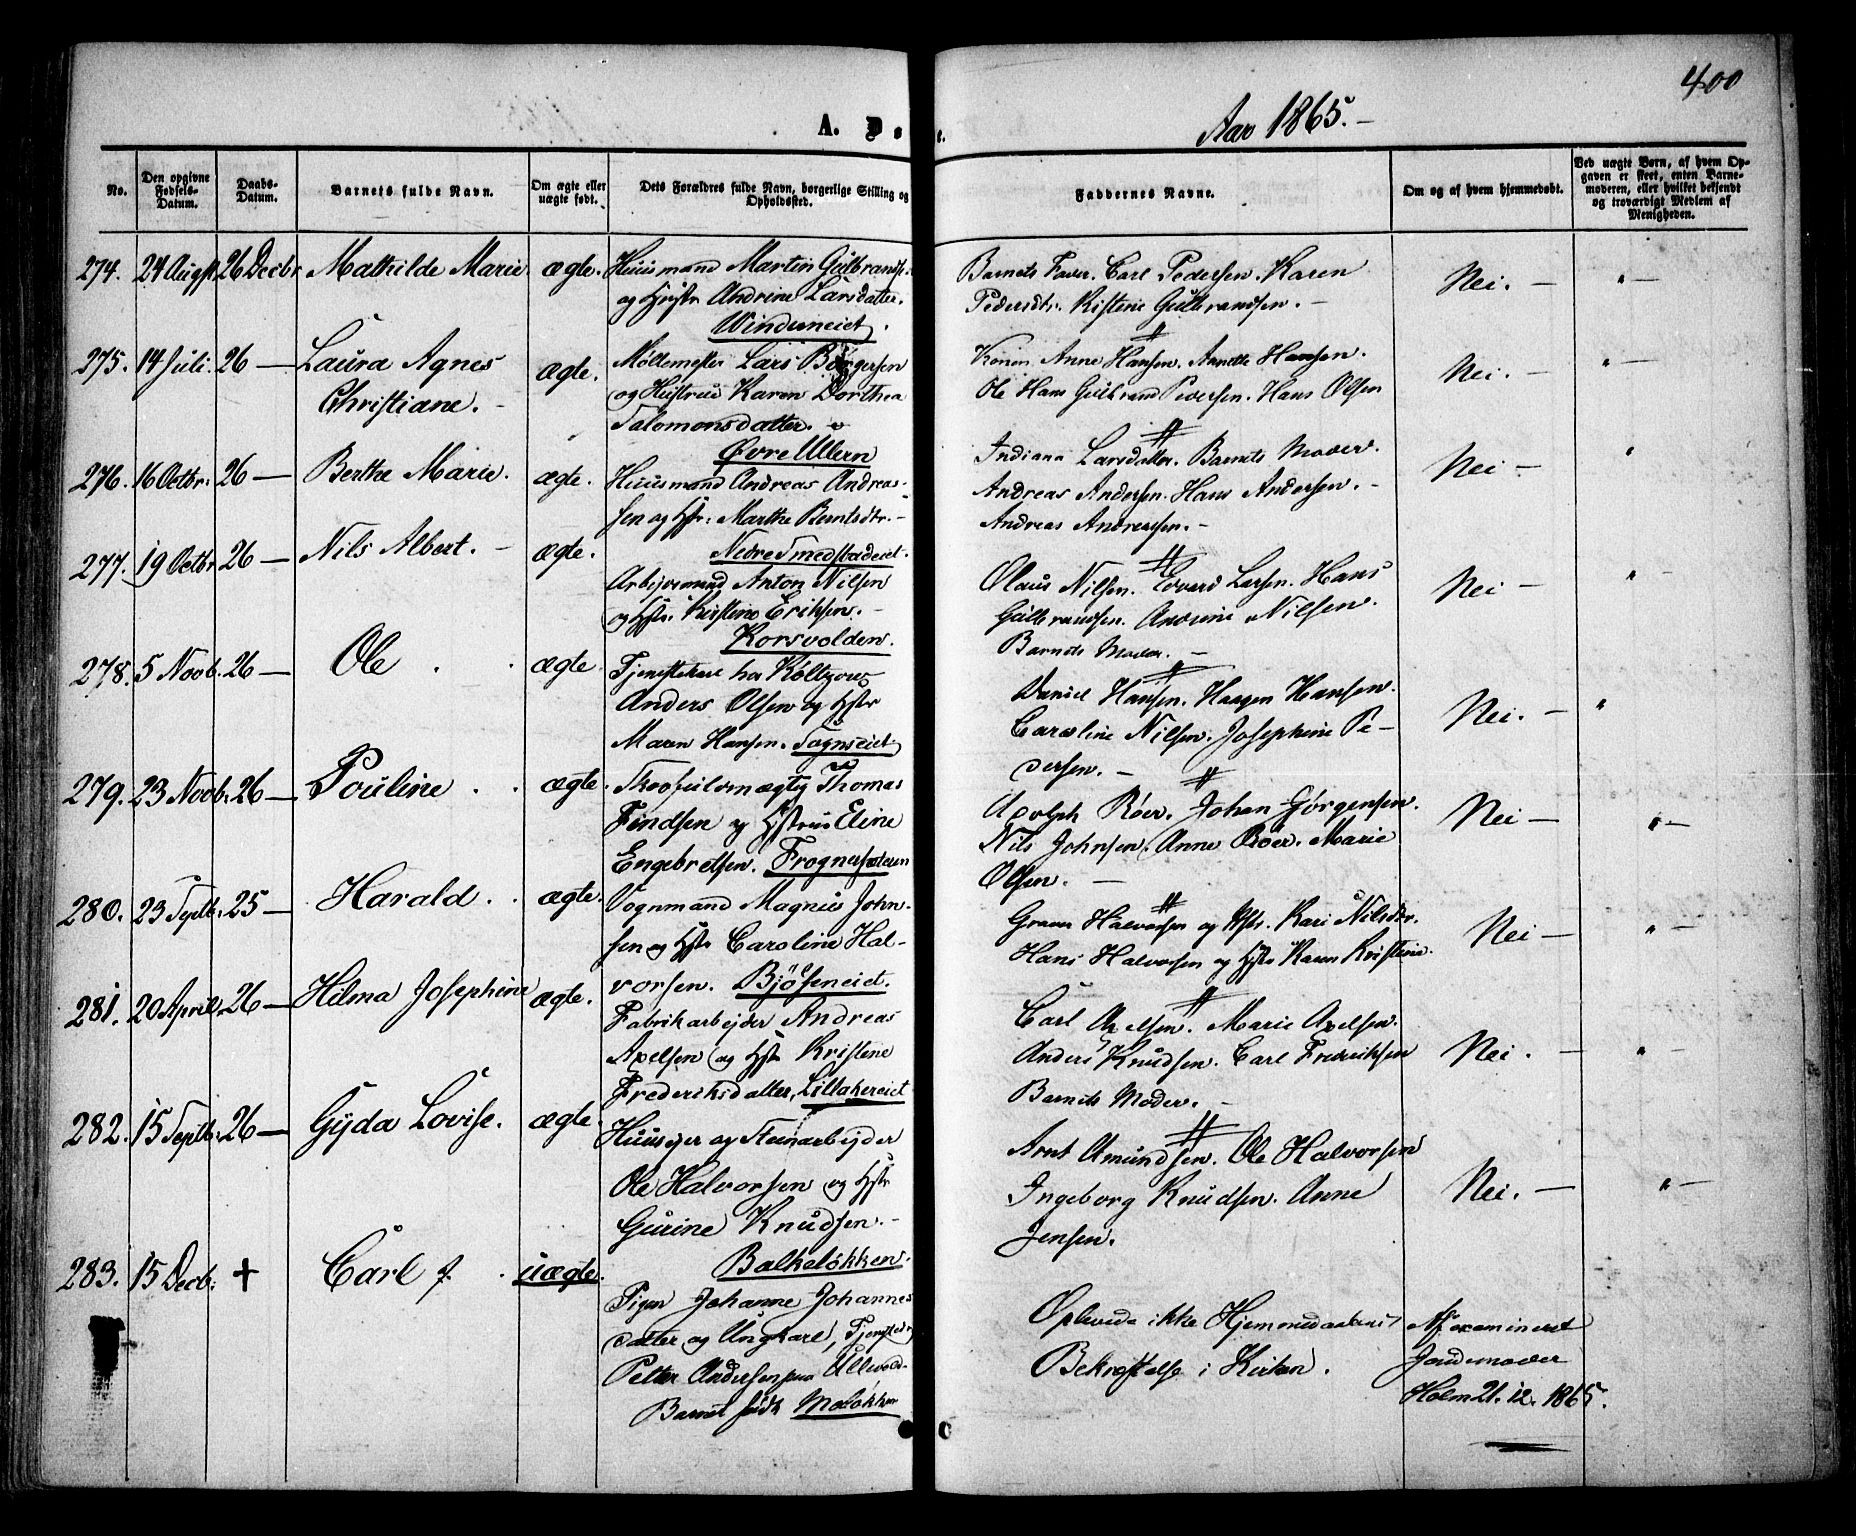 400
A. Dø t.
Aar 1865. -
No.
Den opgivne Fødsels-Datum.
Daabs-Datum.
Barnets fulde Navn.
Om ægte eller uægte født.
Dets Forældres fulde Navn, borgerlige Stilling og Opholdssted.
Faddernes Navne.
Om og af hvem hjemmedøbt.
Ved uægte Børn, af hvem Opgaven er skeet, enten Barnemoderen, eller hvilket bekjendt og troværdigt Medlem af Menigheden.
274. 24 Augst 26 Decbr Mathilde Marie ægte. Huusmand Martin Gulbrands-
og Hustr Andrine Larsdatter.
Winderneiet.
Barnets Fader. Carl Pedersen. Karen
Pedersdtr. Kistine Gulbrandsen. -
Nei. - " -
275. 14 Juli. 26 - Laura Agnes
Christiane. -
ægte. Møllemester Lars Børgersen
og Hustrue Karen Dorthea
Salomonsdatter.
Øvre Ullern
Konen Anne Hansen. Annette Hansen.
Ole Hans Gulbrand Pedersen. Hans Olsen
Nei. - " -
276. 16 Octbr. 26 - Berthe Marie. ægte. Huusmand Andreas Andreas-
sen og Hstr. Marthe Berntsdtr. -
Nedre Smedstadeiet.
Indiana Larsdatter. Barnets Moder.
Andreas Andersen. Hans Andersen. -
Andreas Andreassen. -
Nei - "
277. 19 Octbr 26 - Nils Albert. - ægte. Arbejdsmand Anton Nilsen
og Hstr. Kirstine Eriksen. -
Korsvolden.
Olaus Nilsen. Edvard Larsen. Hans
Gulbrandsen. Andrine Nilsen.
Barnets Moder. -
Nei - " -
278. 5 Novb. 26 - Ole ægte. Tjenestekarl hos
Anders Olsen og Hstr
Maren Hansen. Sognseiet
Daniel Hansen. Haagen Hansen.
Caroline Nilsen. Josephine Pe-
dersen. -
Nei. - "
279. 23 Novb. 26 - Pouline ægte. Skovfuldmægtig Thomas
Findsen og Hstrue Eline
Engebretsen. Frognersæteren
Adolph Röer. Johan Jørgensen.
Nils Johnsen. Anne Röer. Marie
Olsen. -
Nei - " -
280. 23 Septb. 25 - Harald. ægte. Vognmand Magnus John-
sen og Hstr Caroline Hal-
vorsen. Bjölseneiet.
Halvorsen og Hstr. Kari Nilsdtr.
Hans Halvorsen og Hstr Karen Kristine.
Nei - " -
281. 20 April. 26 - Hilma Josephine ægte. Fabrikarbejder Andreas
Axelsen og Hstr Kristene
Frederiksdatter, Lillakereiet
Carl Axelsen. Marie Axelsen.
Anders Knudsen. Carl Frederiksen
Barnets Moder. -
Nei. - " -
282. 15 Septb. 26 - Gyda Lovise. ægte. Huusejer og Steenarbejder
Ole Halvorsen og Hstr
Gurine Knudsen. -
Balkeløkken.
Arnt Amundsen. Ole Halvorsen
Ingeborg Knudsen. Anne
Jensen.
Nei. - " -
283. 15 Decb. + Carl f. uægte. Pigen Johanne Johannes
datter og Ungkarl, Tjenstedr
Petter Andersen paa Ullevold.
Barnet født Moløkken
Oplevede ikke Hjemmedaabens
Bekræftelse i Kirken.
Af examineret
Jordemoder
Holm 21. 12. 1865.